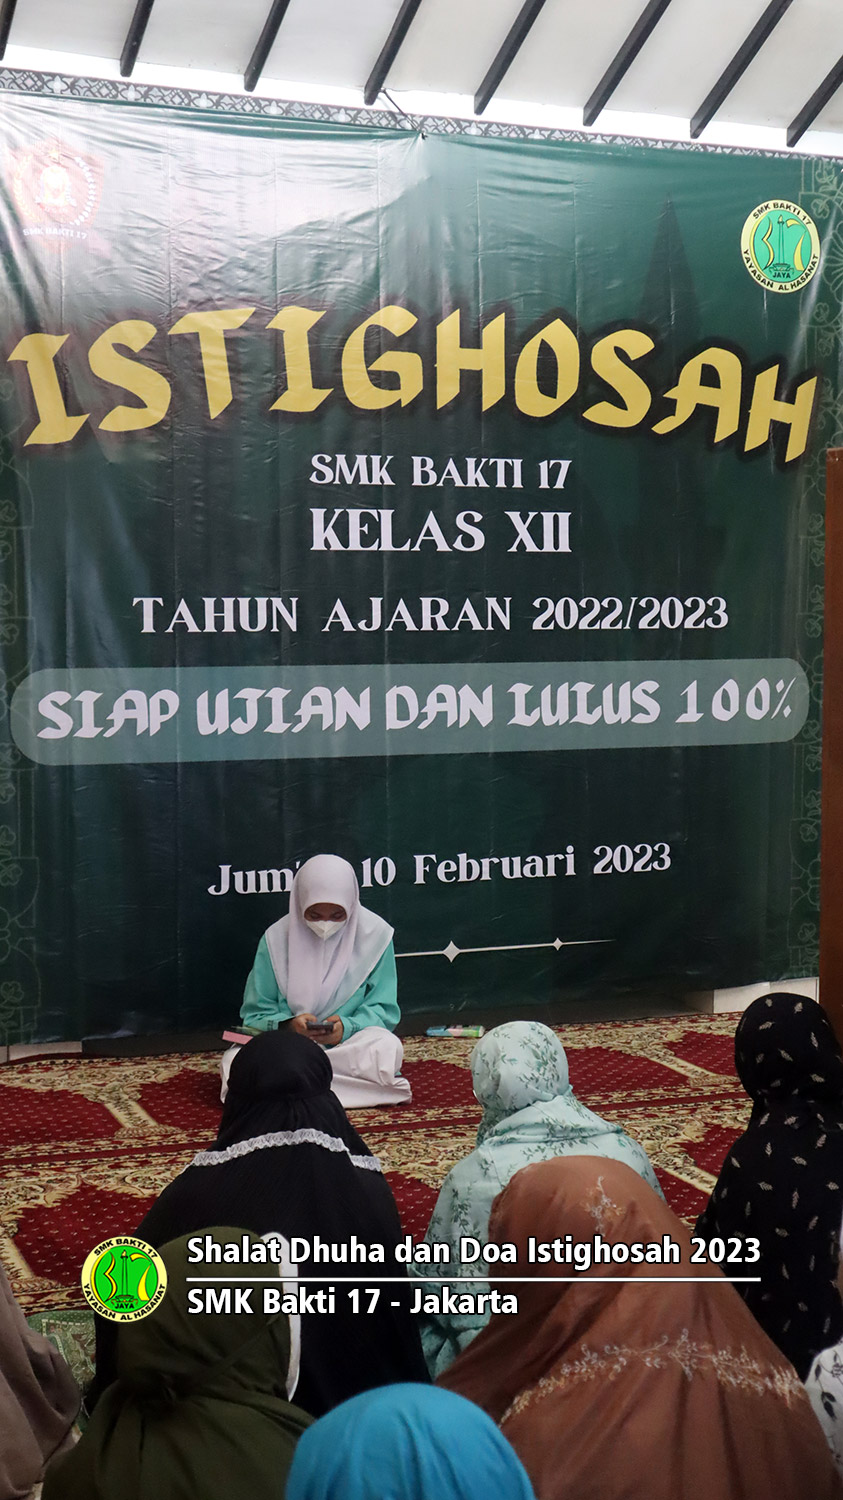 SMK BAKTI 17
SMK BAKTI 17
JAYA
YAYASAN AL HASANAT
ISTIGHOSAH
SMK BAKTI 17
KELAS XII
TAHUN AJARAN 2022/2023
SIAP UJIAN DAN LULUS 100%
10 Februari 2023
SMK BAKTI 17
JAYA
YAYASAN AL HASANAT
Shalat Dhuha dan Doa Istighosah 2023
SMK Bakti 17 - Jakarta